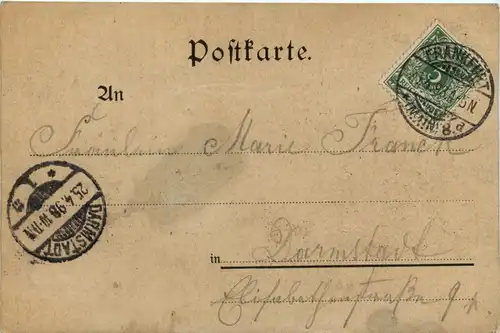 Postkarte.
An
Fräulein Marie Franck
in Darmstadt
Elisabethenstraße 9
FRANKFURT
5
DARMSTADT
25.4.98.
1